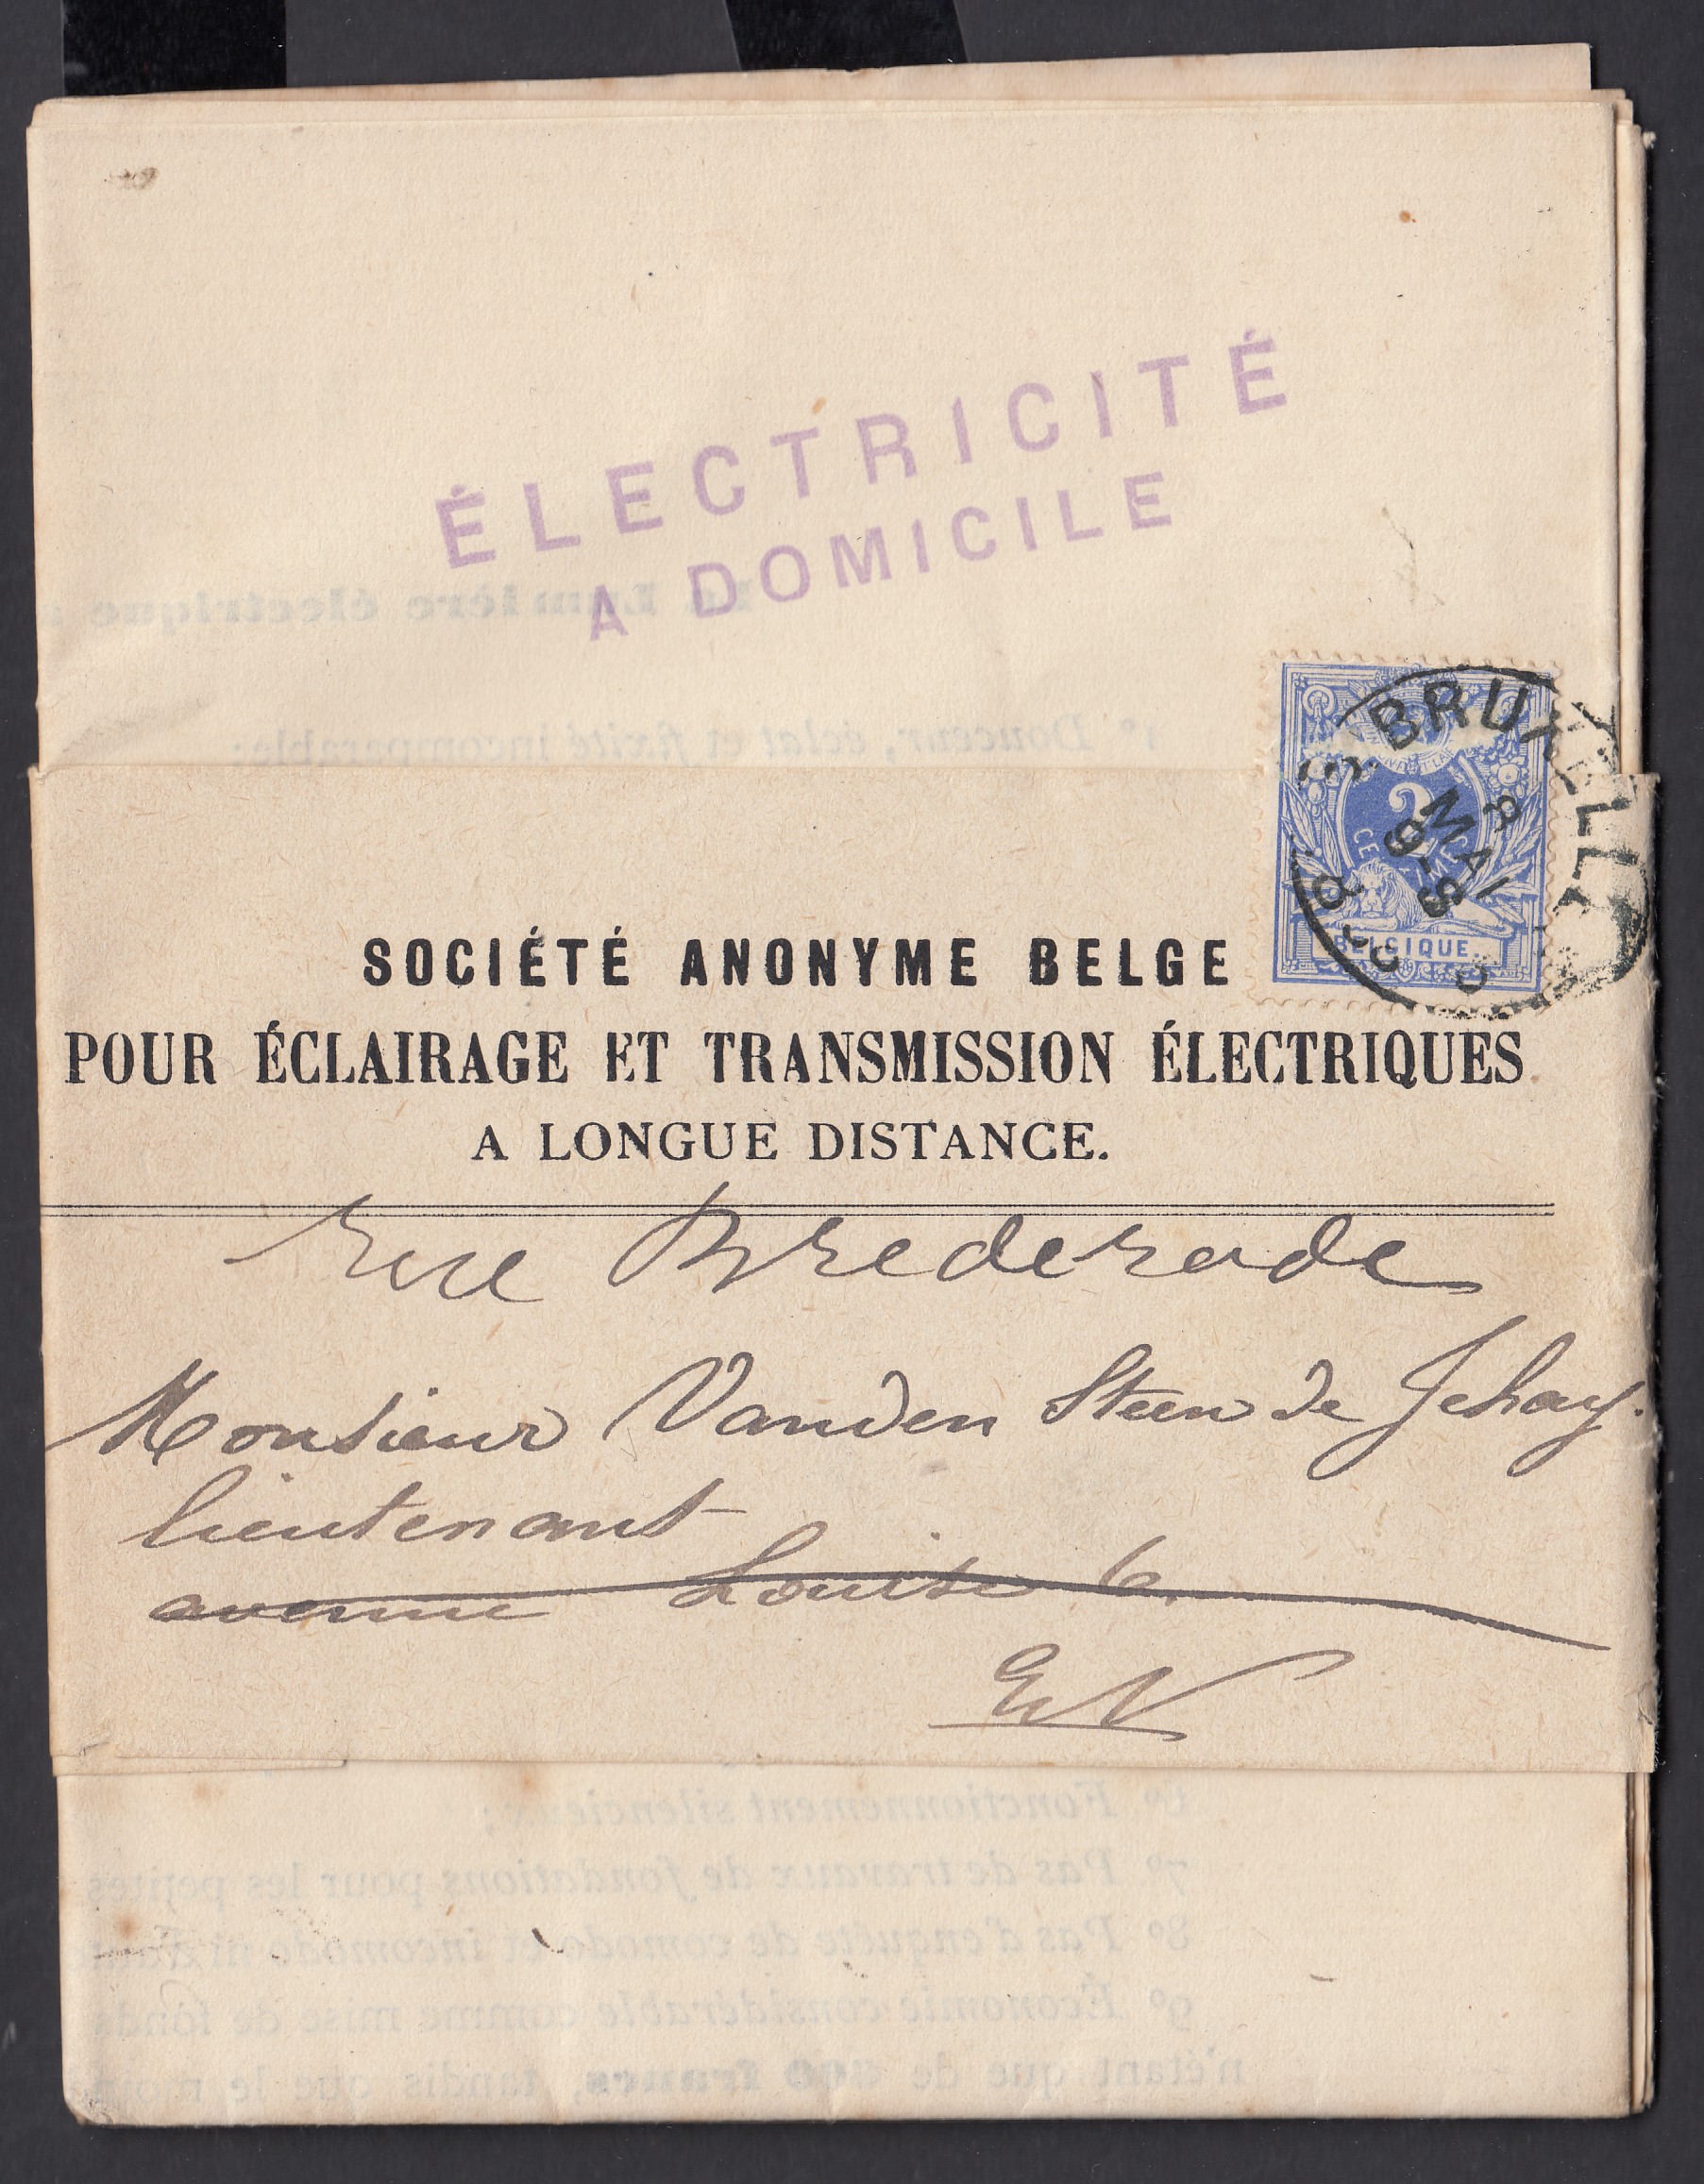 ÉLECTRICITÉ
A DOMICILE
La Lumière électrique
1º Douceur, éclat et fixité incomparable
BRUXELLES
3
8
MAI
9-S
2
CENTIMES
BELGIQUE
SOCIÉTÉ ANONYME BELGE
POUR ÉCLAIRAGE ET TRANSMISSION ÉLECTRIQUES
A LONGUE DISTANCE.
rue Brederode
Monsieur Vanden Steen de Jehay.
lieutenant
avenue Louise 6.
EV
6º Fonctionnement silencieux;
7º Pas de travaux de fondations pour les petites
8º Pas d'enquête de comodo et incomodo ni
9º Économie considérable comme mise de fonds
n'étant que de francs, tandis que le